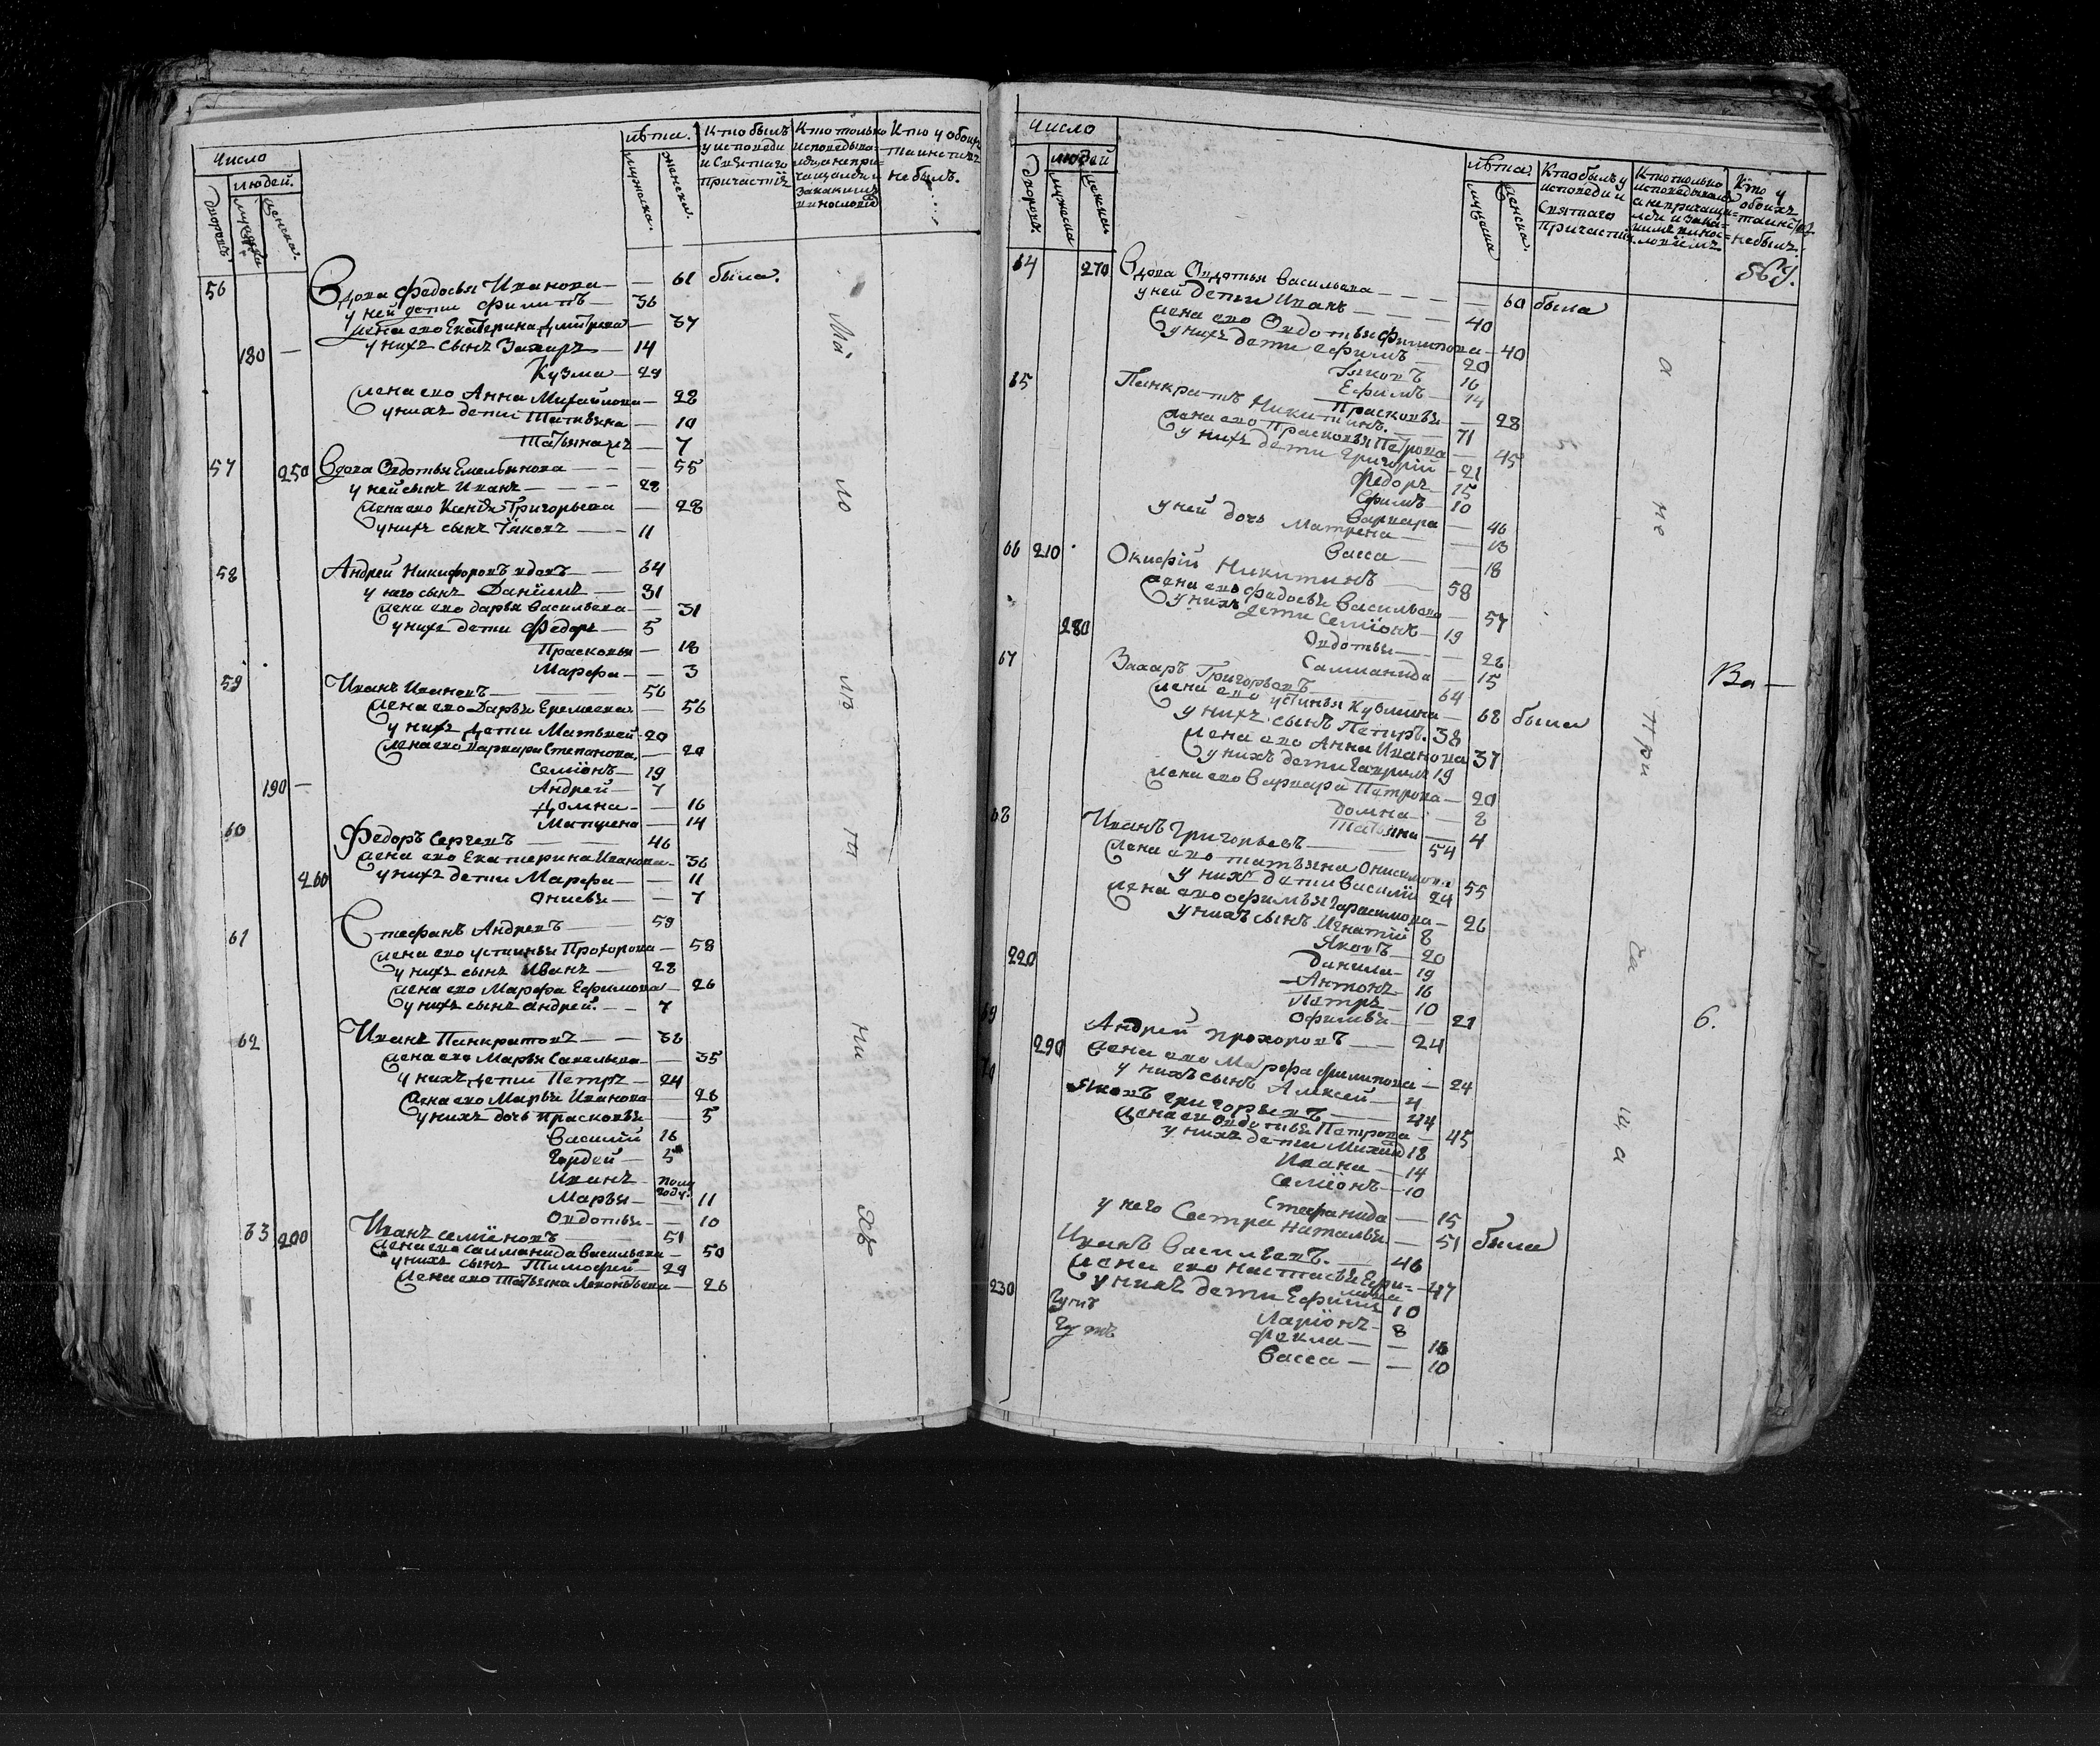 Число
людей.
дворовъ.
мужеска
женска.
лѣта.
мужеска.
женска.
Кто былъ
у исповеди
и Святаго
Причастїя
Кто только
исповедыва=
лся а непри=
чащался и
за какимъ
винословїемъ
Кто у обоихъ
таинствъ
не былъ.
56 Вдова Федосья Иванова — 61 была.
у ней дети Филипъ — 36
Жена ево Екатерина Дмитрева — 37
180 — у нихъ сынъ Захаръ — 14
Кузма — 29
Жена ево Анна Михайлова — 28
у нихъ дети Татьяна — 10
Татьяна — 7
57 250 Вдова Овдотья Емельянова — 55
у ней сынъ Иванъ — 28
Жена ево Ксенья Григорьева — 28
у нихъ сынъ Їяковъ — 11
58 Андрей Никифоровъ вдовъ — 64
у него сынъ Данїилъ — 31
Жена ево Дарья Васильева — 31
у нихъ дети Федоръ — 5
Прасковья — 18
Марфа — 3
59 Иванъ Ивановъ — 56
Жена ево Дарья Еремеева — 56
у нихъ дети Матьвей 20
Жена ево Варвара Степанова — 20
Семїонъ — 19
190 — Андрей — 7
Домна — 16
Матрена — 14
60 Федоръ Сергеевъ — 46
Жена ево Екатерина Иванова — 36
260 у нихъ дети Марфа — 11
Онисья — 7
61 Стефанъ Андреевъ — 59
Жена ево Устинья Прохорова — 58
у нихъ сынъ Иванъ — 28
Жена ево Марфа Ефимова — 26
у нихъ сынъ Андрей. — 7
62 Иванъ Панкратовъ — 38
Жена ево Марья Савельева — 35
у нихъ дети Петръ — 24
Жена ево Марья Иванова — 26
у нихъ дочь Прасковья — 5
Василий 16
Гордей — 5
Иванъ полу году.
Марья — 11
Овдотья — 10
63 200 Иванъ Семїеновъ — 51
Жена ево Саламанида Васильева — 50
у нихъ сынъ Тимофей — 29
Жена ево Татьяна Леконтьева — 26
Число
людей
дворовъ.
мужеска
женска
лѣта.
мужеска
женска.
Кто былъ у
исповеди и
Святаго
Причастия
Кто только
исповедывался
а не причаща=
лся и за ка=
кимъ винос=
ловїемъ
Кто у
обоихъ
таинствъ
не былъ.
569.
64 270 Вдова Овдотья Васильева — 60 была
у ней дети Иванъ — 40
Жена ево Овдотья Филипова — 40
у нихъ дети Ефимъ — 20
Їяковъ 16
Ефимъ — 14
Прасковья — 28
65 Панкратъ Никитинъ. — 71
Жена ево Прасковья Петрова — 45
у нихъ дети Григорїй — 21
Федоръ 15
Ефимъ — 10
Варвара — 46
у ней дочь Матрена — 13
Васса — 18
66 210 Окинфїй Никитинъ — 58
Жена ево Федосья Васильева — 57
у нихъ дети Семїонъ — 19
280 Овдотья — 26
Саламанида — 15
67 Захаръ Григорьевъ — 64
Жена ево Устинья Кузмина — 68 была
у нихъ сынъ Петръ. 38
Жена ево Анна Иванова 37
у нихъ дети Гаврила 19
Жена ево Варвара Петрова — 20
Домна — 8
Татьяна — 4
68 Иванъ Григорьевъ — 54
Жена ево Татьяна Онисимова 55
у нихъ дети Василїй 24
Жена ево Офимья Гарасимова — 26
у нихъ сынъ Игнатїй 8
Яковъ 20
220 Данила — 19
Антонъ 16
Петръ — 10
Офимья — 21
69 Андрей Прохоровъ — 24
290 Жена ево Марфа Филипова — 24
у нихъ сынъ Алексей — 4
70 Яковъ Григорьевъ — 44
Жена ево Овдотья Петрова — 45
у нихъ дети Михаила 18
Ивана — 14
Семїонъ — 10
Стефанида — 15
у него Сестра Наталья — 51 была
Иванъ Васильевъ. — 46
Жена ево Настасья Ефи=
мова 47
230 у нихъ дети Ефимъ 10
Ларїонъ 8
Фекла — 16
Васса — 10
Ма
ло
лѣ
т
ни
хъ
а
не
при
ча
ща
Ва —
6.